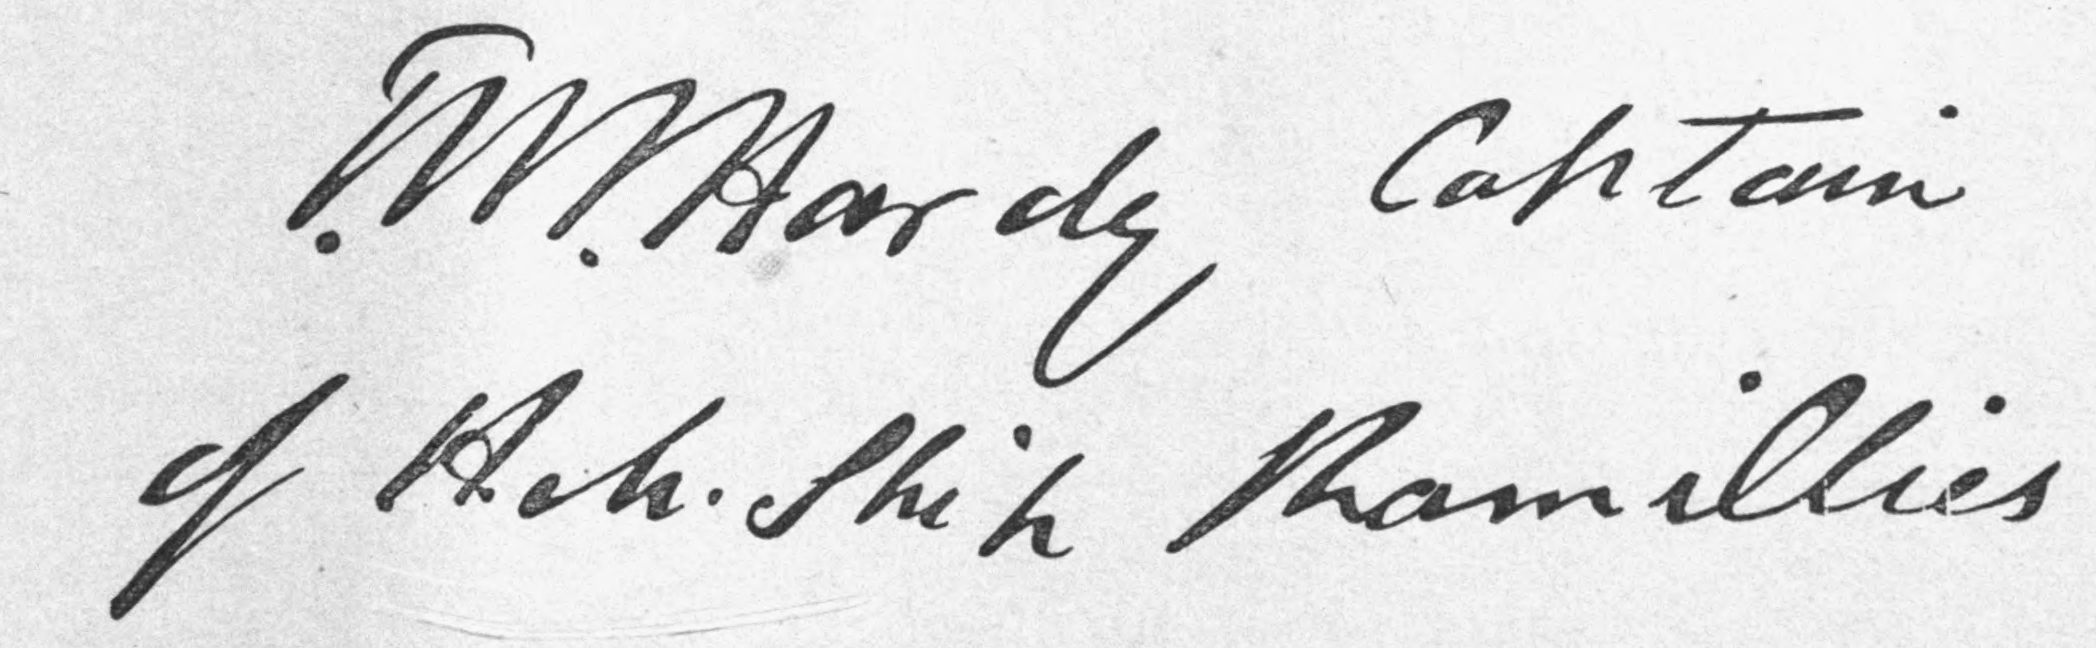 T. M. Hardy Captain
of H. M. Ship Ramillies